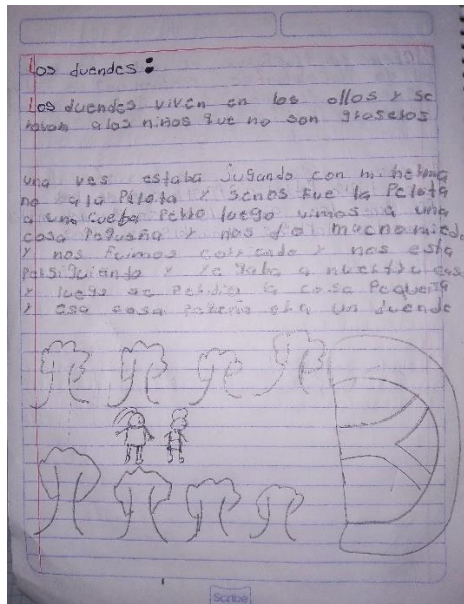 Los duendes:
Los duendes viven en los ollos y se
roban a los niños que no son groseros
una ves estaba jugando con mi herma
no a la pelota y se nos fue la pelota
a una cueba perro luego vimos a una
cosa pequeña y nos dio mucho miedo
y nos fuimos corriendo y nos esta
persiguiendo y yegaba a nuestra casa
y luego se perdio la cosa pequeña
y esa cosa pequeña era un duende
Scribe